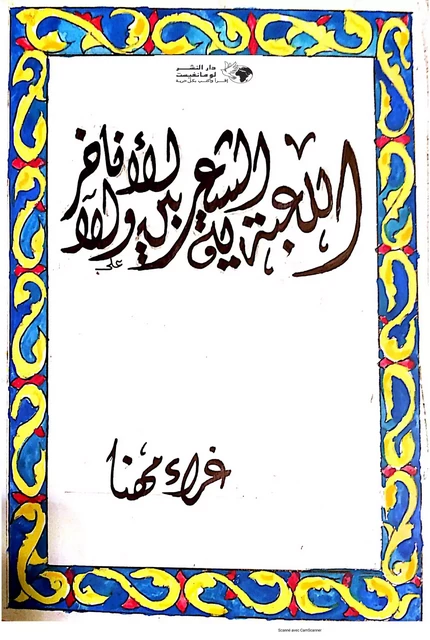 دار النشر
لومانفيست
إقرأ واكتب بكل حرية
اللعبة الشعرية بين الأنا والآخر
علي
غراء مهنا
Scanné avec CamScanner